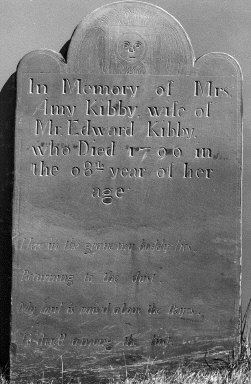 In Memory of Mrs.
Amy Kibby, wife of
Mr. Edward Kibby,
who Died 1790 in
the 68th year of her
age
in the grave my body lies,
Returning to the dust,
My soul is rais'd above the
among the Just